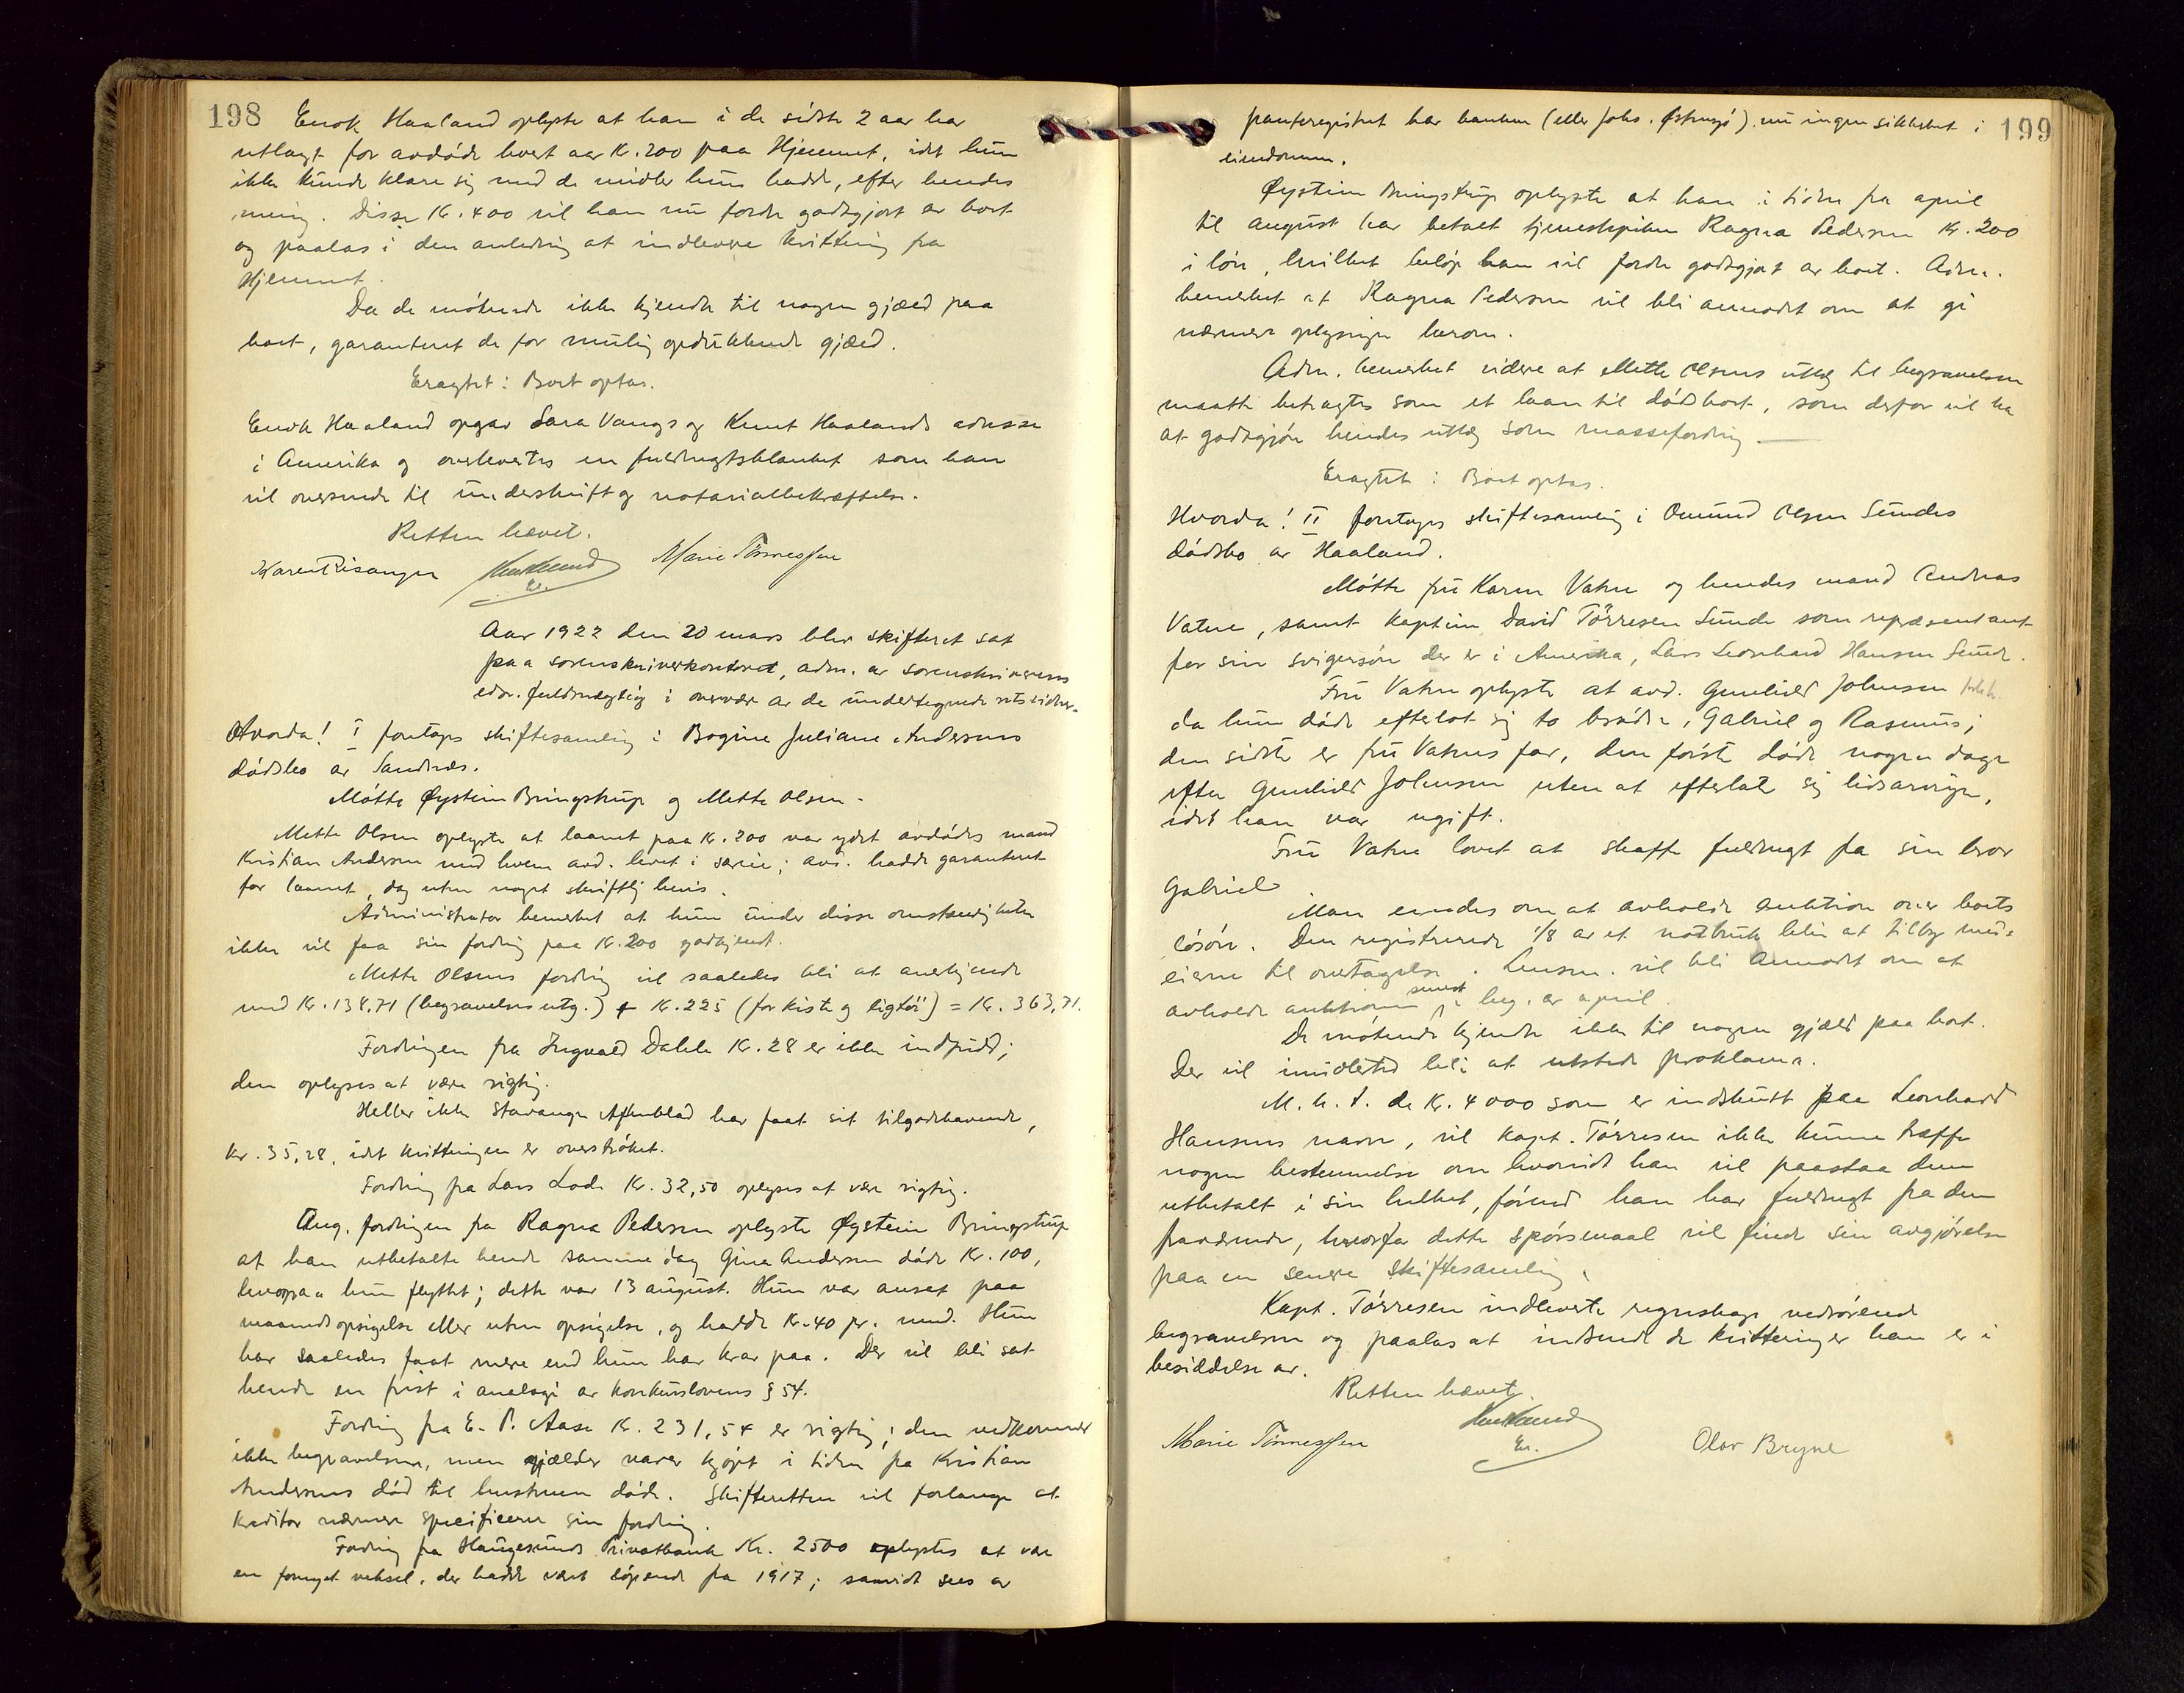 198
Enok Haaland oplyste at han i de sidste 2 aar har
utlagt for avdøde hvert aar Kr. 200 paa Hjemmet, idet hun
ikke kunde klare sig med de midler hun hadde, efter hendes
mening. Disse Kr. 400 vil han nu fordre godtgjort av boet
og paalas i den anledning at indlevere kvittering fra
Hjemmet.
Da de møtende ikke kjendte til nogen gjæld paa
boet, garanteret de for mulig opdukkende gjæld.
Eragtet: Boet optas.
Enok Haaland opgav Sara Vangs og Knut Haalands adresse
i Amerika og overlevertes en fuldmagtsblanket som han
vil oversende til underskrift og notarialbekræftelse.
Retten hævet.
Karen Risanger Marie Tönnessen
Aar 1922 den 20 mars blev skifteret sat
paa sorenskriverkontoret, adm. av sorenskriverens
edsv. fuldmægtig i overvær av de undertegnede retsvidner.
Hvorda! I foretoges skiftesamling i Bogine Juliane Andersens
dødsbo av Sandnæs.
Møtte Øystein Bringstrup og Mette Olsen.
Mette Olsen oplyste at laanet paa Kr. 200 var ydet avdødes mand
Kristian Andersen med hvem avd. levet i særeie; avd. hadde garanteret
for laanet, dog uten noget skriftlig bevis.
Administrator bemerket at hun under disse omstændigheter
ikke vil faa sin fordring paa Kr. 200 godkjendt.
Mette Olsens fordring vil saaledes bli at anerkjende
med Kr. 138,71 (begravelsesutg.) + Kr. 225 (for kiste og ligtøi) = Kr. 363,71.
Fordringen fra Ingvald Dahle Kr. 28 er ikke indfridd;
den oplyses at være rigtig.
Heller ikke Stavanger Aftenblad har faat sit tilgodehavende,
Kr. 35,28, idet kvitteringen er overstrøket.
Fordring fra Lars Lode Kr. 32,50 oplyses at være rigtig.
Ang. fordringen fra Ragna Pedersen oplyste Øystein Bringstrup
at han utbetalte hende samme dag Gina Andersen døde Kr. 100,
hvorpaa hun flyttet; dette var 13 august. Hun var ansat paa
maanedsopsigelse eller uten opsigelse, og hadde Kr. 40 pr. mnd. Hun
har saaledes faat mere end hun har krav paa. Der vil bli sat
hende en frist i analogi av konkurslovens § 54.
Fordring fra E. P. Aase Kr. 231,54 er rigtig; den vedkommer
ikke begravelsen, men gjælder varer kjøpt i tiden fra Kristian
Andersens død til hustruen døde. Skifteretten vil forlange at
kreditor nærmere specificerer sin fordring.
Fordring fra Haugesunds Privatbank Kr. 2500 oplystes at være
en fornyet veksel, der hadde vært løpende fra 1917; saavidt sees av
199
panteregistret har banken (eller Johs. ) nu ingen sikkerhet i
eiendommen.
Øystein Bringstrup oplyste at han i tiden fra april
til august har betalt tjenestepiken Ragna Pedersen Kr. 200
i løn, hvilket beløp han vil fordre godtgjort av boet. Adm.
bemerket at Ragna Pedersen vil bli anmodet om at gi
nærmere oplysninger herom.
Adm. bemerket videre at Mette Olsens utlæg til begravelsen
maatte betragtes som et laan til dødsboet, som derfor vil ha
at godtgjøre hendes utlæg som massefordring.
Eragtet: Boet optas.
Hvorda! II foretoges skiftesamling i Omund Olsen Sundes
dødsbo av Haaland.
Møtte fru Karen Vatne og hendes mand Andreas
Vatne, samt kaptein David Tørresen Sunde som repræsentant
for sin svigersøn der er i Amerika, Lars Leonhard Hansen Sunde.
Fru Vatne oplyste at avd. Gunhild Johnsen
da hun døde efterlot sig to brødre, Gabriel og Rasmus;
den sidste er fru Vatnes far, den første døde nogen dager
efter Gunhild Johnsen uten at efterlate sig livsarvinger,
idet han var ugift.
Fru Vatne lovet at skaffe fuldmagt fra sin bror
Gabriel
Man enedes om at avholde auktion over boets
løsøre. Den registrerede 1/8 av et notbruk blir at tilby med-
eierne til overtagelse. Lensm. vil bli anmodet om at
avholde auktionen senest i beg. av april.
De møtende kjendte ikke til nogen gjæld paa boet.
Der vil imidlertid bli at utstede proklama.
M. h. t. de Kr. 4000 som er indskutt paa Leonhard
Hansens navn, vil kapt. Tørresen ikke kunne træffe
nogen bestemmelse om hvorvidt han vil paastaa dem
utbetalt i sin helhet, førend han har fuldmagt fra den
fraværende, hvorfor dette spørsmaal vil finde sin avgjørelse
paa en senere skiftesamling.
Kapt. Tørresen indleverte regnskap vedrørende
begravelsen og paalas at indsende de kvitteringer han er i
besiddelse av.
Retten hævet.
Marie Tönnessen Olav Bryne